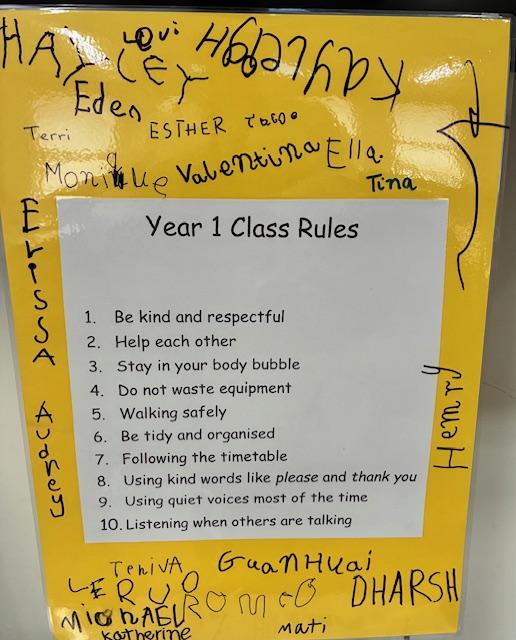 HAYLEY
Levi
Kayleigh
Eden
Terri
ESTHER
Monique
Valentina
Ella
Tina
Erissa
Audney
Year 1 Class Rules
1. Be kind and respectful
2. Help each other
3. Stay in your body bubble
4. Do not waste equipment
5. Walking safely
6. Be tidy and organised
7. Following the timetable
8. Using kind words like please and thank you
9. Using quiet voices most of the time
10. Listening when others are talking
Hemry
TehiVA
GuanHuai
LERUO
ROMeO
DHARSH
MichAEL
Katherine
Mati